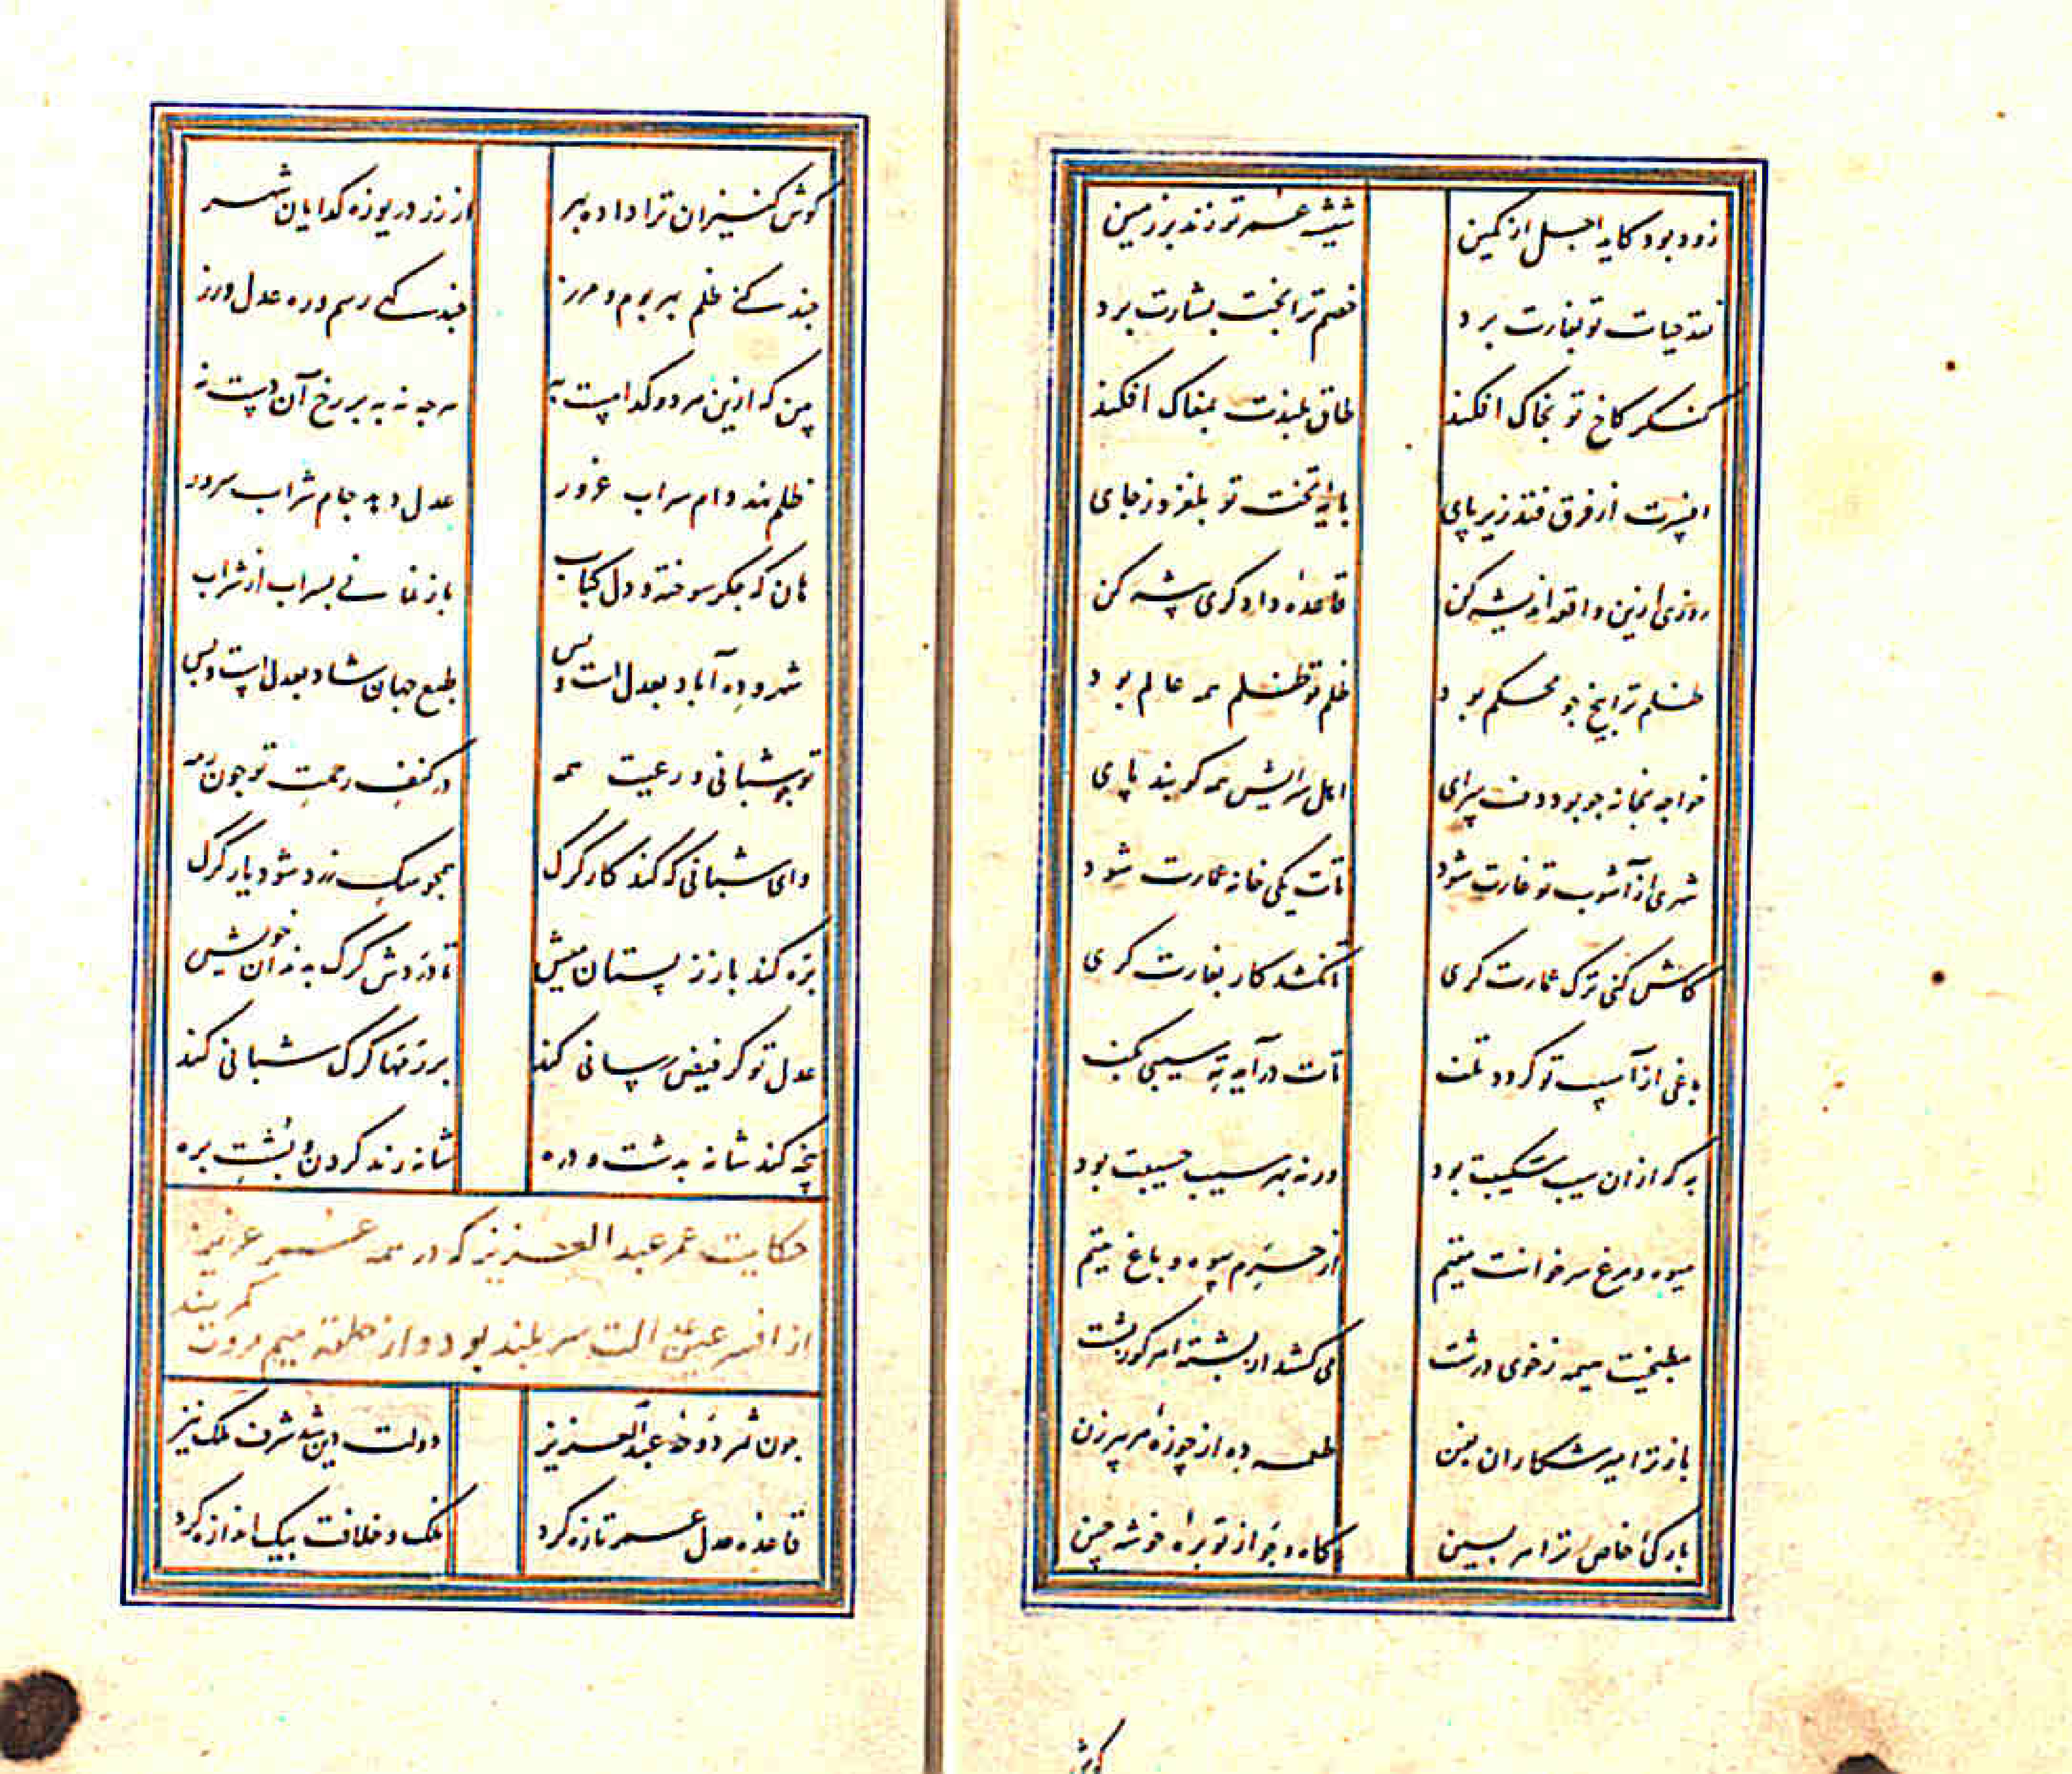 زود بود کاید اجل از کمین شیشه عمر تو زند بر زمین
نقد حیات تو بغارت برد خصم ترا بخت بشارت برد
کنکر کاخ تو بخاک افکند طاق بلندت بمغاک افکند
افسرت از فرق فتد زیر پای پایه تخت تو بلغزد ز جای
روزی ازین واقعه اندیشه کن قاعده داد کری پیشه کن
ظلم ترا بیخ چو محکم بود ظلم تو ظلم همه عالم بود
خواجه بخانه چو بود دف سرای اهل سرایش همه کوبند پای
شهری از آشوب تو غارت شود تات یکی خانه عمارت شود
کاش کنی ترک عمارت کری تا نکشد کار بغارت کری
باغی از آسیب تو کردد تلف تات در آید به سیبی بکف
به که از ان سیب شکیبت بود ورنه بهر سیب حسیبت بود
میوه و مرغ سر خوانت مقیم از حرم بیوه و باغ یتیم
مطبخیت هیمه ز خوی درشت می کشد از پشته هر کوژپشت
باز ترا میر شکاران بفن طعمه ده از جوزه هر پیرزن
بارکی خاص ترا هر پسین کاه و جو از توبره خوشه چین
کوش
کوش کنیزان ترا داده بهر از زر دریوزه کدایان شهر
چند کنی ظلم بهر بوم و مرز چند کهی رسم و ره عدل ورز
بین که ازین هر دو کدامست به هر چه نه به بر رخ آن دست نه
ظلم نهد دام سراب غرور عدل دهد جام شراب سرور
هان که جکر سوخته و دل کباب باز نمانی بسراب از شراب
شهر و ده آباد بعدل است و بس طبع جهان شاد بعدل است و بس
تو چو شبانی و رعیت همه در کنف رحمت تو چون رمه
وای شبانی که کند کار کرک همچو سک زرد شود یار کرک
بره کند باز ز پستان میش تا دردش کرک به دندان خویش
عدل تو کر فیض رسانی کند بر رمها کرک شبانی کند
پنجه کند شانه به دشت و دره شانه زند کردن و پشت بره
حکایت عمر عبد العزیز که در همه عمر عزیز
از افسر عین عدالت سر بلند بود و از حلقه میم مروت کمربند
چون ثمر دوحه عبد العزیز دولت دین شد شرف ملک نیز
قاعده عدل عمر تازه کرد ملک و خلافت بیک اندازه کرد